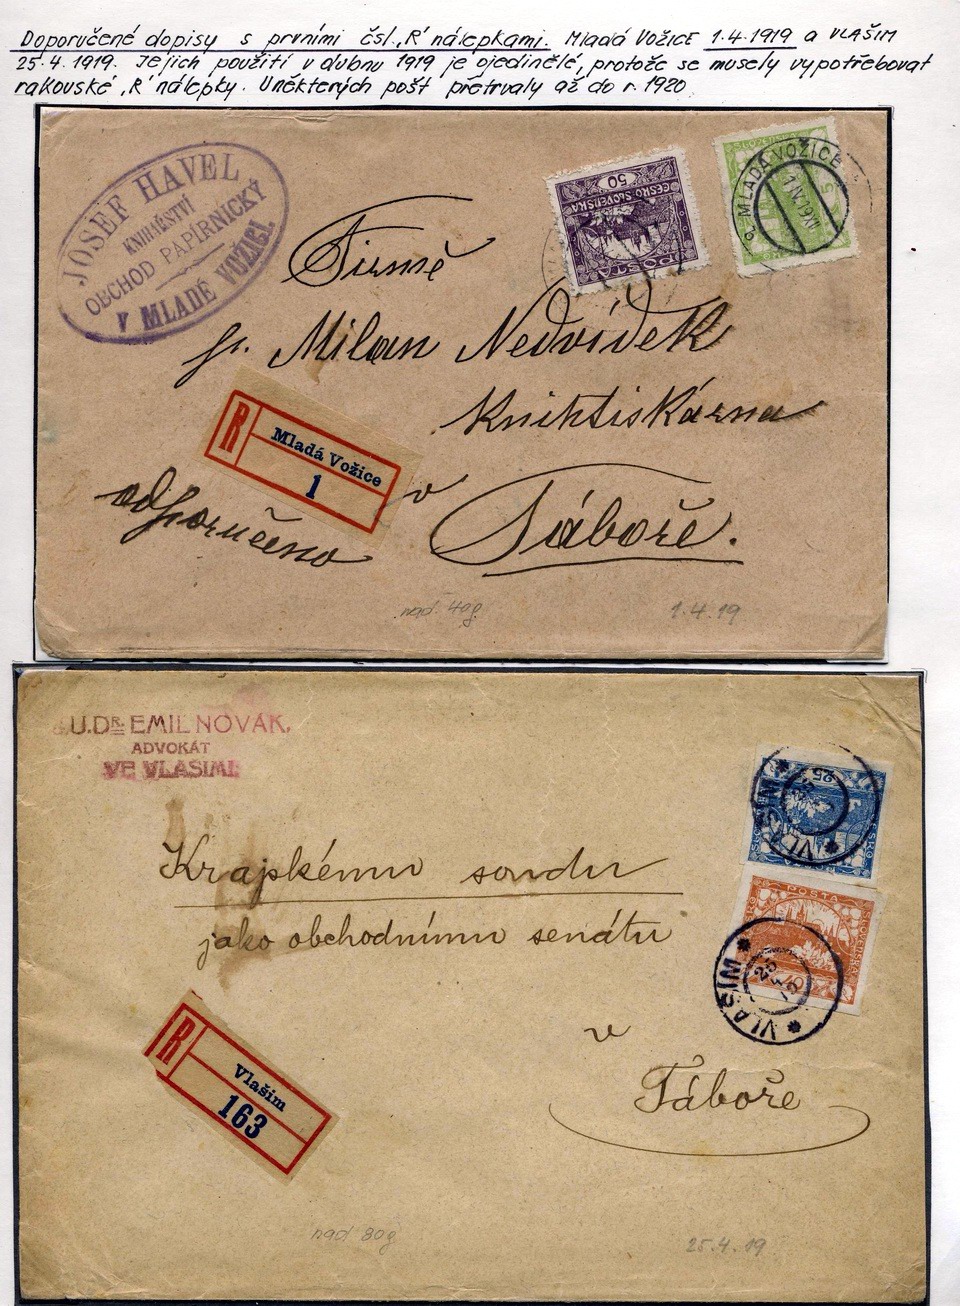 Doporučené dopisy s prvními čsl. „R" nálepkami. Mladá Vožice 1.4.1919 a VLAŠIM
25.4.1919. Jejich použití v dubnu 1919 je ojedinělé, protože se musely vypotřebovat
rakouské „R" nálepky. U některých pošt přetrvaly až do r. 1920
JOSEF HAVEL
KNIHAŘSTVÍ
OBCHOD PAPÍRNICKÝ
V MLADÉ VOŽICI.
50
ČESKO-SLOVENSKÁ
POŠTA
MLADÁ VOŽICE
1 IV 19 XII
5
Firmě
p. Milan Nedvídek
Knihtiskárna
R
Mladá Vožice
1
odporučeno
v
Táboře.
nad 40g
1.4.19
J.U.DR. EMIL NOVÁK,
ADVOKÁT
VE VLAŠIMI.
25
VLAŠIM
Krajskému soudu
jako obchodnímu senátu
POŠTA
SLOVENSKÁ
VLAŠIM
25
v
Táboře
R
Vlašim
163
nad 80g
25.4.19